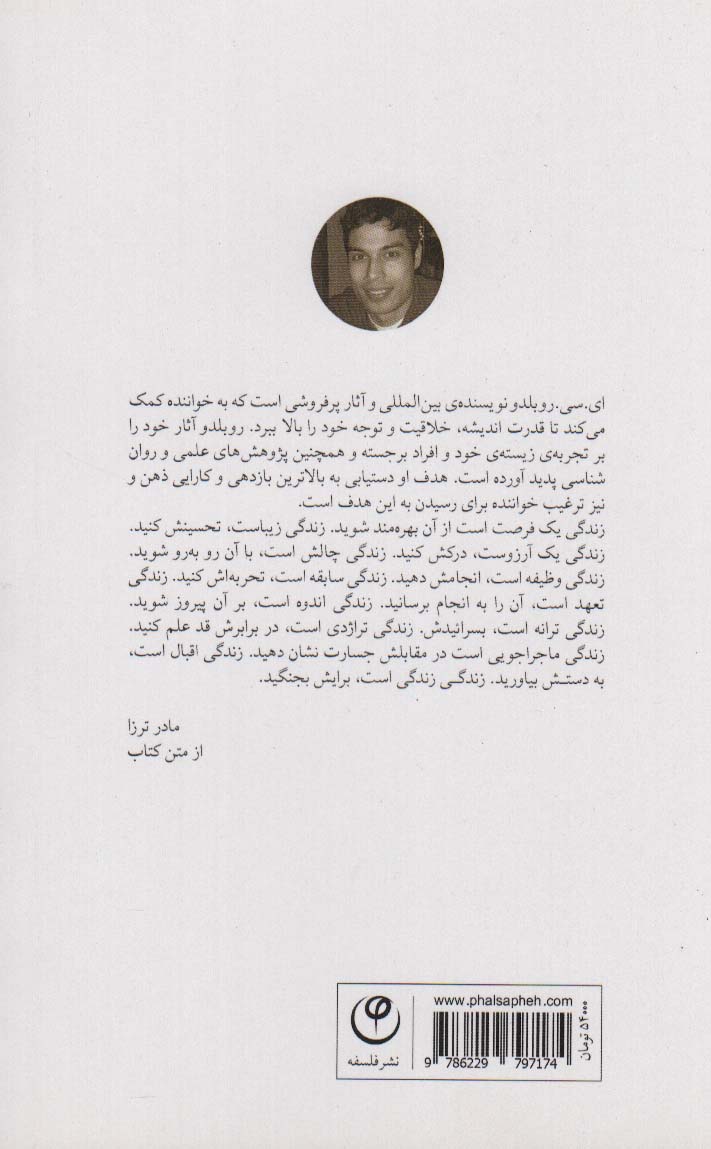 ای.سی.روبلدو نویسنده‌ی بین‌المللی و آثار پرفروشی است که به خواننده کمک
می‌کند تا قدرت اندیشه، خلاقیت و توجه خود را بالا ببرد. روبلدو آثار خود را
بر تجربه‌ی زیسته‌ی خود و افراد برجسته و همچنین پژوهش‌های علمی و روان
شناسی پدید آورده است. هدف او دستیابی به بالاترین بازدهی و کارایی ذهن و
نیز ترغیب خواننده برای رسیدن به این هدف است.
زندگی یک فرصت است از آن بهره‌مند شوید. زندگی زیباست، تحسینش کنید.
زندگی یک آرزوست، درکش کنید. زندگی چالش است، با آن رو به‌رو شوید.
زندگی وظیفه است، انجامش دهید. زندگی سابقه است، تحربه‌اش کنید. زندگی
تعهد است، آن را به انجام برسانید. زندگی اندوه است، بر آن پیروز شوید.
زندگی ترانه است، بسرائیدش. زندگی تراژدی است، در برابرش قد علم کنید.
زندگی ماجراجویی است در مقابلش جسارت نشان دهید. زندگی اقبال است،
به دستش بیاورید. زندگی زندگی است، برایش بجنگید.
مادر ترزا
از متن کتاب
www.phalsapheh.com
۵۴۰۰۰ تومان
9 786229 797174
نشر فلسفه